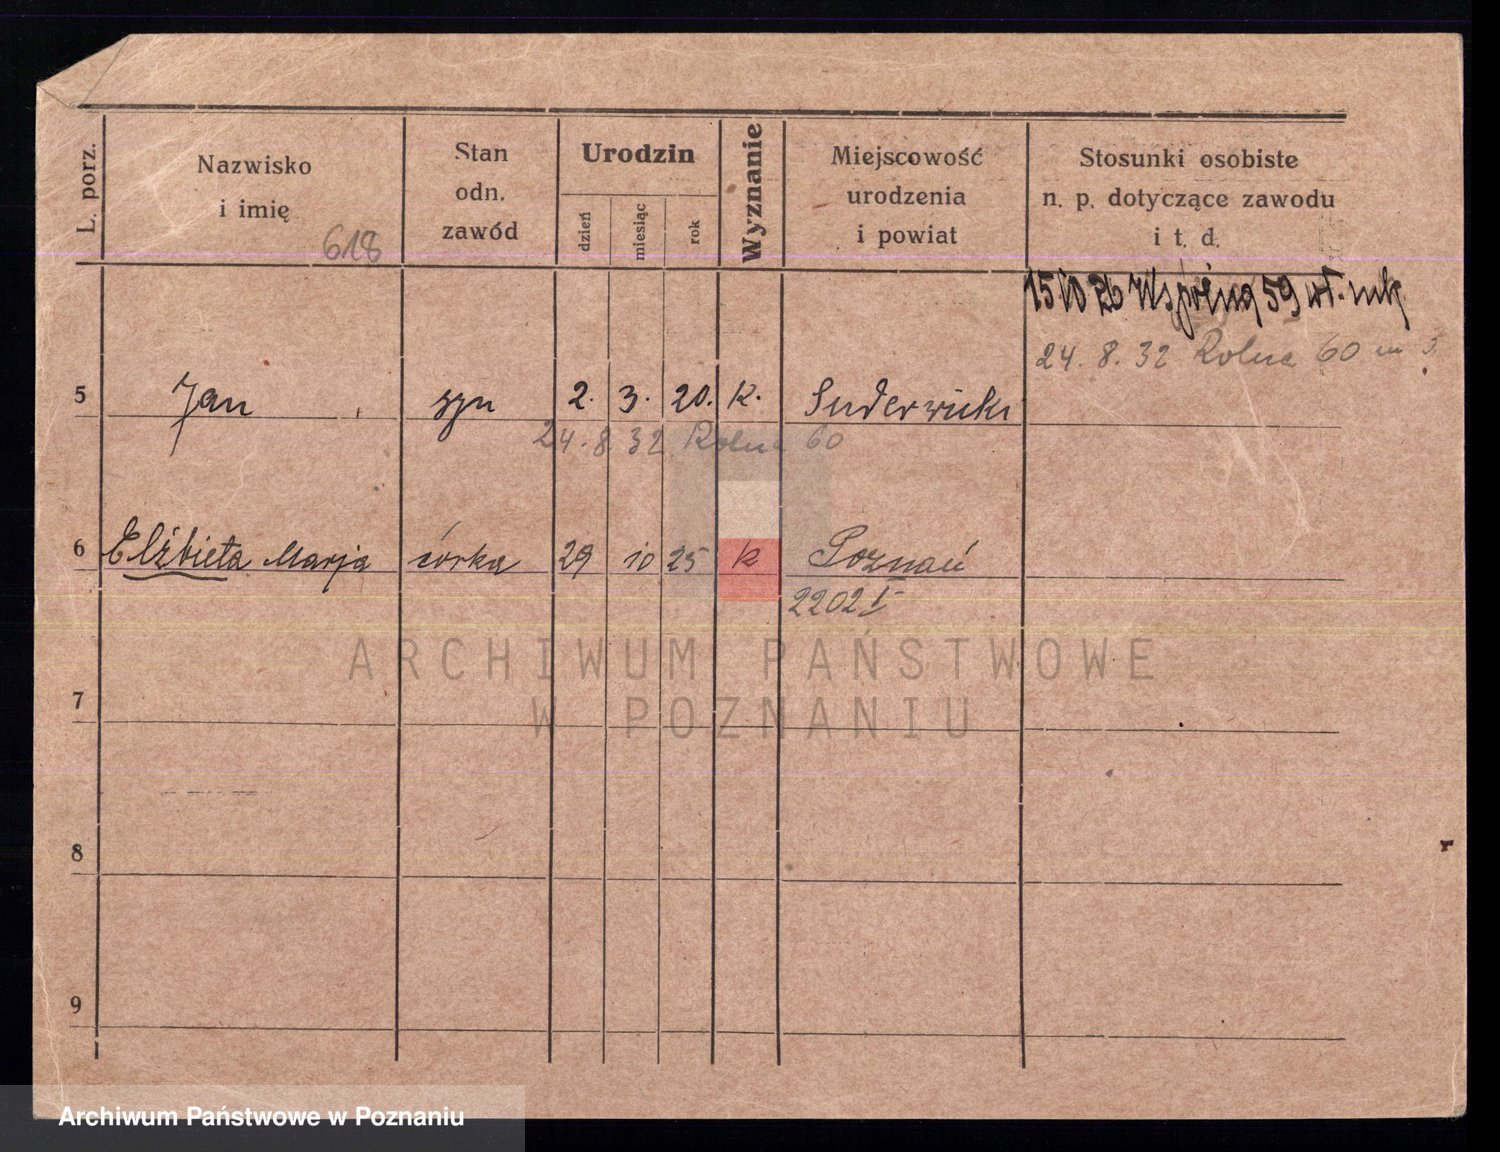 L. porz.
Nazwisko
i imię
618
Stan
odn.
zawód
Urodzin
dzień
miesiąc
rok
Wyznanie
Miejscowość
urodzenia
i powiat
Stosunki osobiste
n. p. dotyczące zawodu
i t. d.
15 10 26 Wspólna 59
24. 8. 32 Rolna 60 m 3
5 Jan syn 2. 3. 20. k. Suderwick
24. 8 32 Rolna 60
6 Elżbieta Marja córka 29 10 25 k Poznań
2202 I
ARCHIWUM PAŃSTWOWE
W POZNANIU
7
8
9
Archiwum Państwowe w Poznaniu